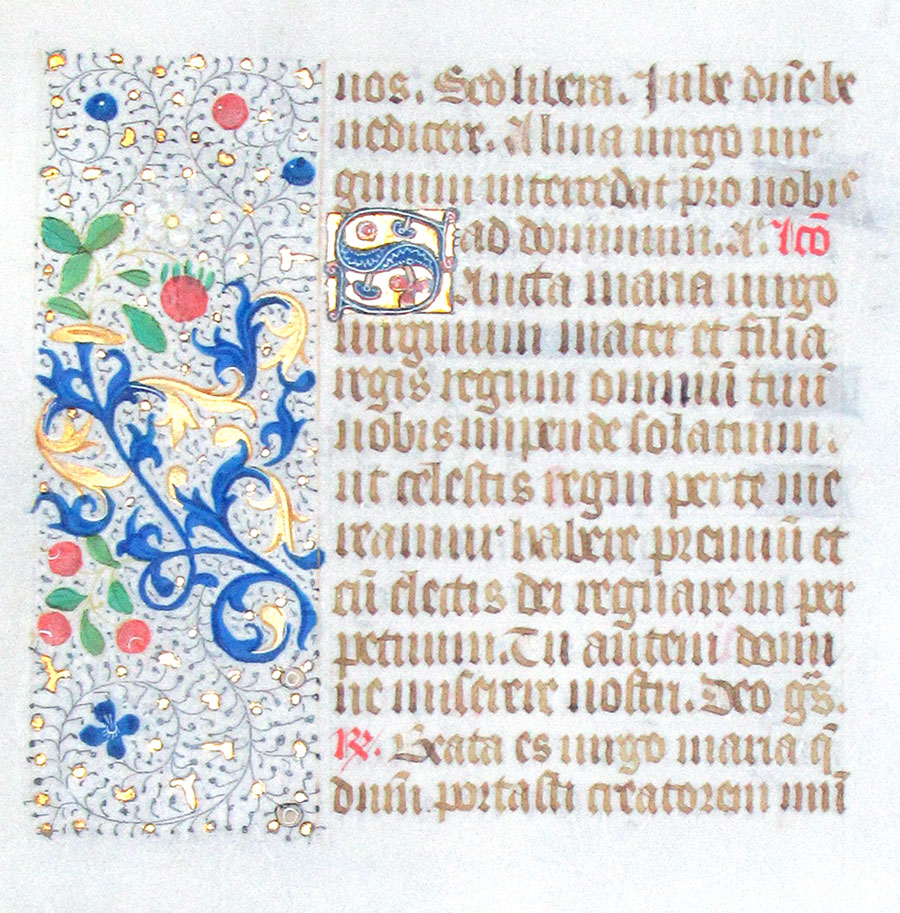 nos. Sed libera. Jube dn̄e be
nedicere. Alma uirgo uir
ginum intercedat pro nobis
ad dominum. A. lc̄o
Sancta maria uirgo
uirginum mater et filia
regis regum omniū tuū
nobis impende solatium.
ut celestis regni per te me
reamur habere premiū et
cū electis dei regnare in per
petuum. Tu autem domi
ne miserere nostri. Deo gr̄s.
R. Beata es uirgo maria q̄
dn̄m portasti creatorem mū